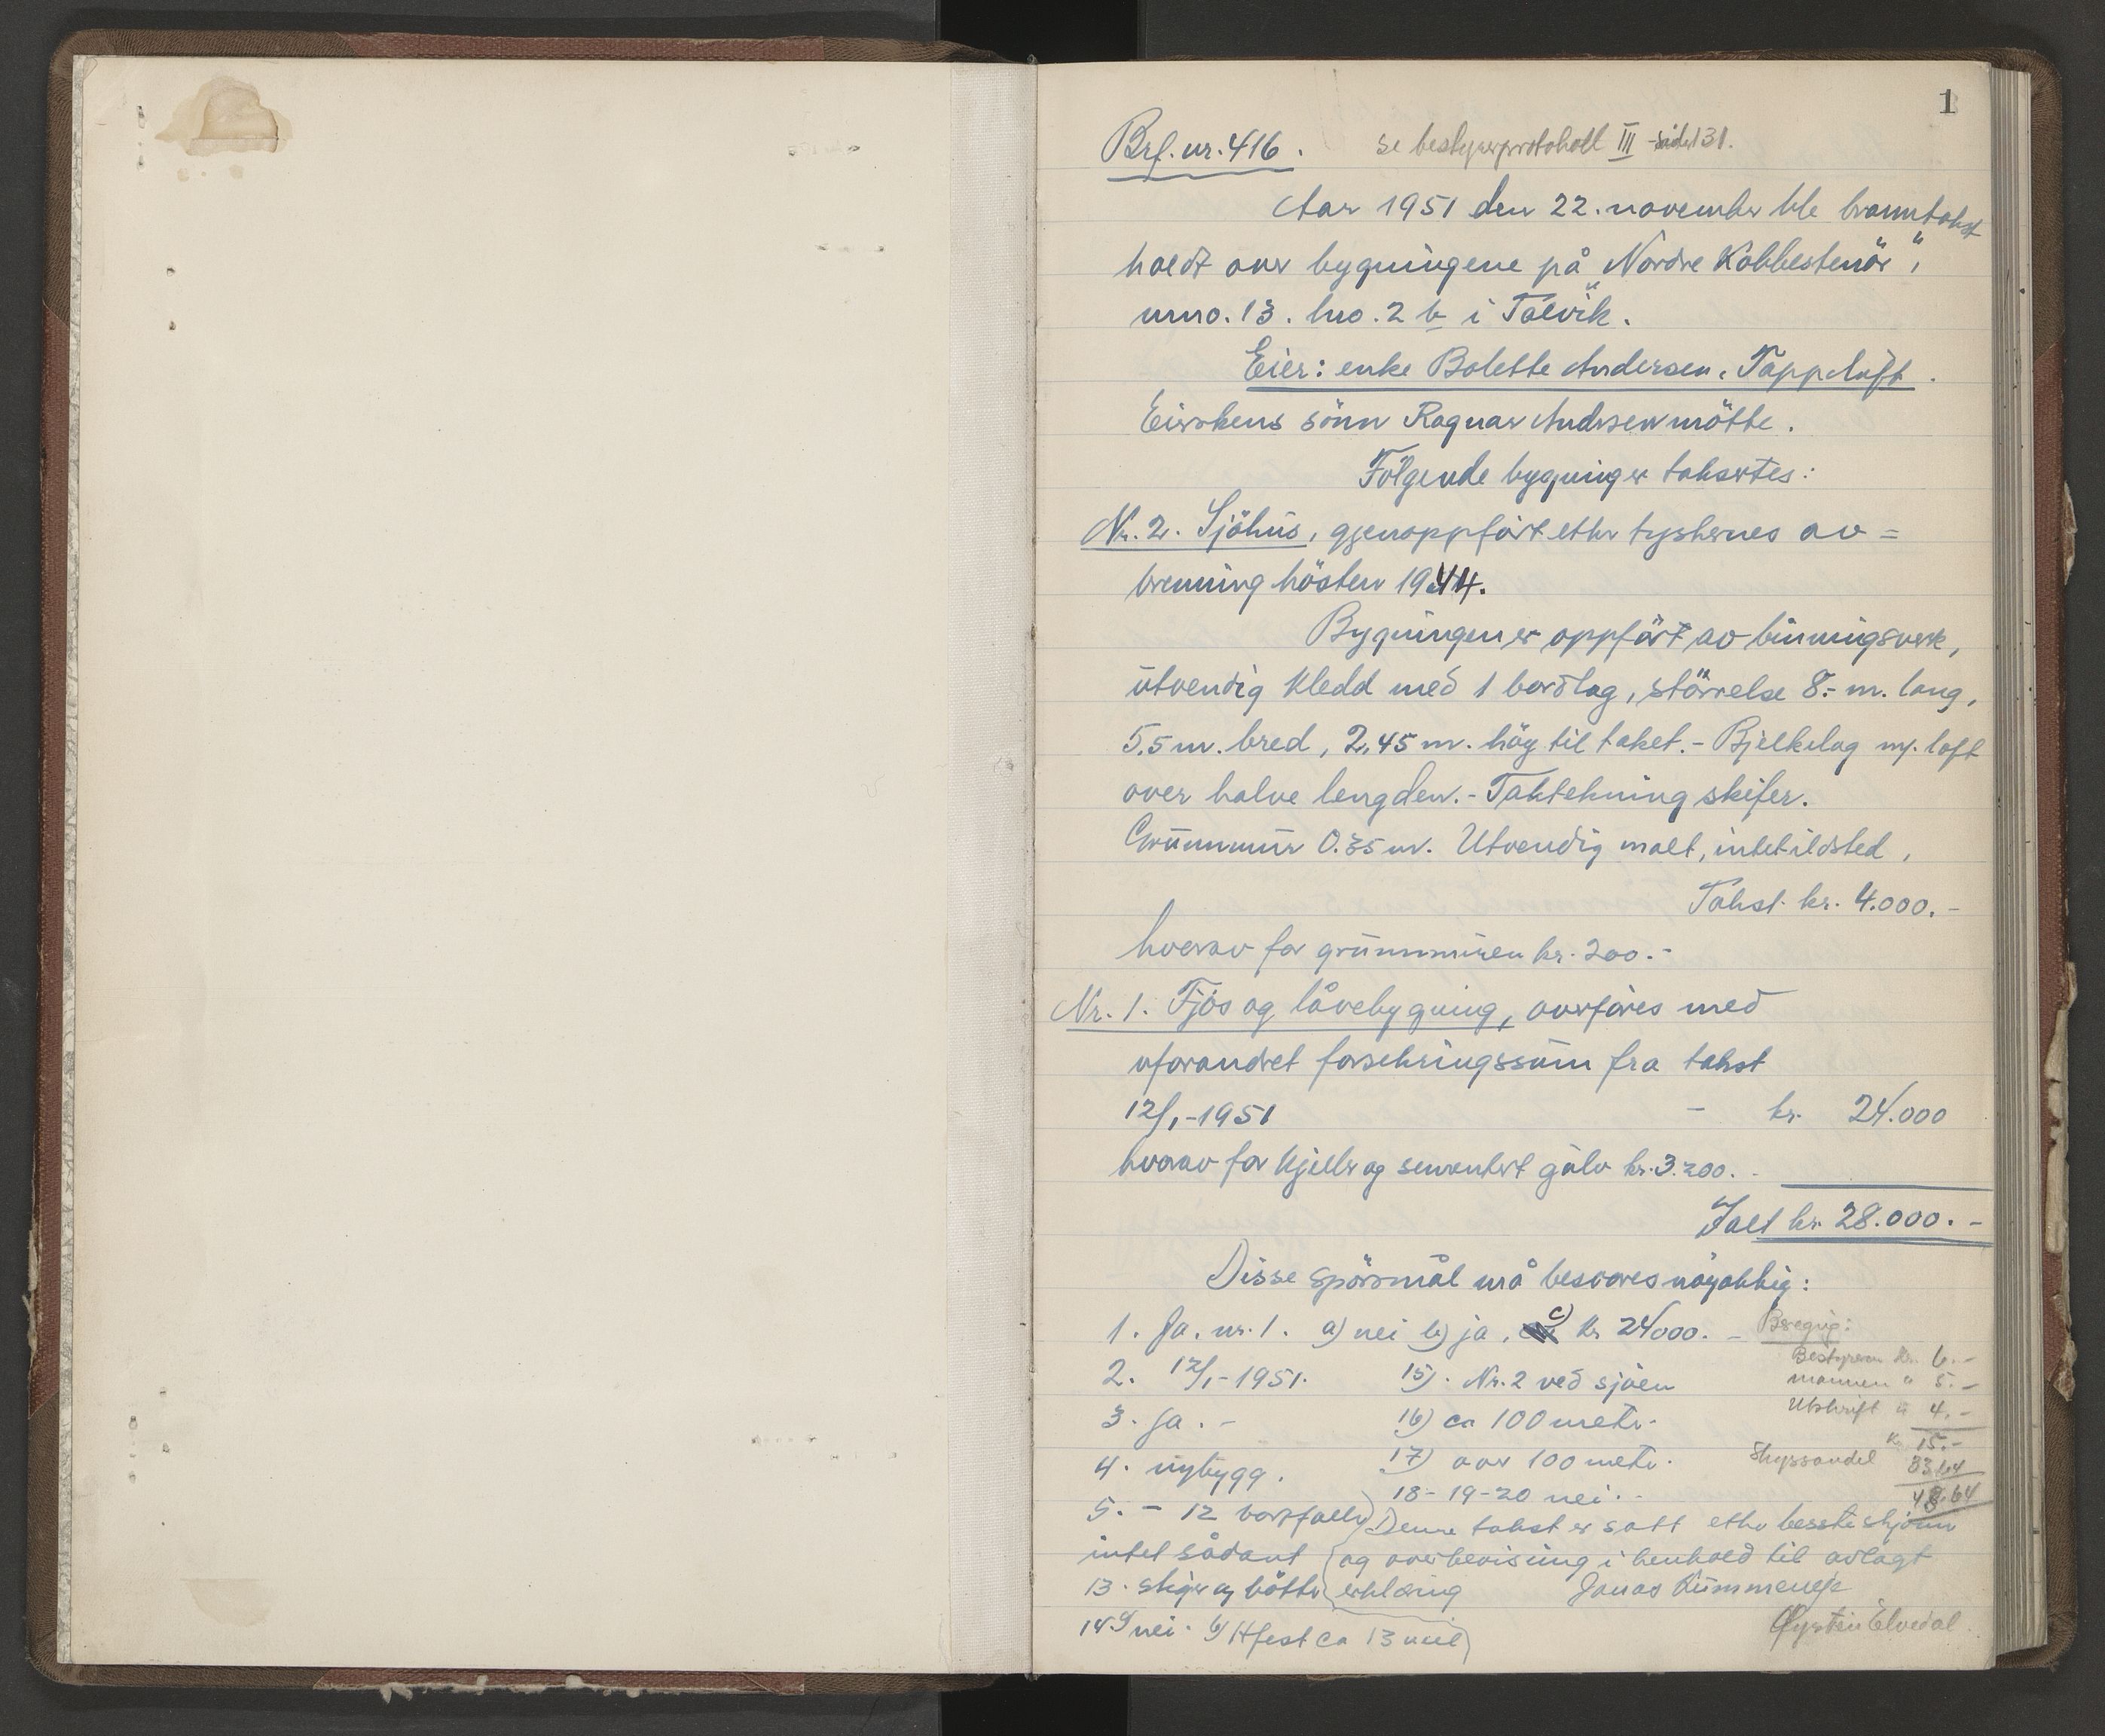 1
Brf. nr. 416. se bestyrerprotokoll III side 131.
Aar 1951 den 22. november ble branntakst
holdt over bygningene på "Nordre Kobbestenör",
urno. 13. bno. 2 b i Talvik.
Eier: enke Bolette Andersen, Tappeluft.
Eierskens sönn Ragnar Andersen mötte.
Fölgende bygninger taksertes:
Nr. 2. Sjöhus, gjenoppfört etter tyskernes av=
brenning hösten 1944.
Bygningen er oppfört av binningsverk,
utvendig kledd med 1 bordlag, störrelse 8.- m. lang,
5,5 m. bred, 2,45 m. höy til taket. - Bjelkelag m/. loft
over halve lengden. - Taktekning skifer.
Grunnmur 0.35 m. Utvendig malt, intet ildsted,
Takst kr. 4.000.-
hvorav for grunnmuren kr. 200.-
Nr. 1. Fjös og låvebygning, overföres med
uforandret forsikringssum fra takst
12/1-1951 - kr. 24.000
hvorav for kjeller og sementert gulv kr. 3.200.-
Ialt kr. 28.000.-
Disse spörsmål må besvares nöyaktig:
1. Ja. nr. 1. a) nei b) ja, c) kr 24000. -
2. 12/1-1951.
3. Ja. -
4. nybygg.
5. - 12 bortfaller
intet sådant
13. stiger og bötter
14. a) nei. b) Hfest ca 13 mil
15). Nr. 2 ved sjöen
16) ca 100 meter.
17) over 100 meter.
18-19-20 nei. -
Beregng:
Bestyreren kr. 6.-
mannen " 5.-
Utskrift " 4.-
kr 15.-
Skyssandel 33.64
48.64
Denne takst er satt etter beste skjönn
og overbevisning i henhold til avlagt
erklæring Jonas Kummeneje
Øystein Elvedal